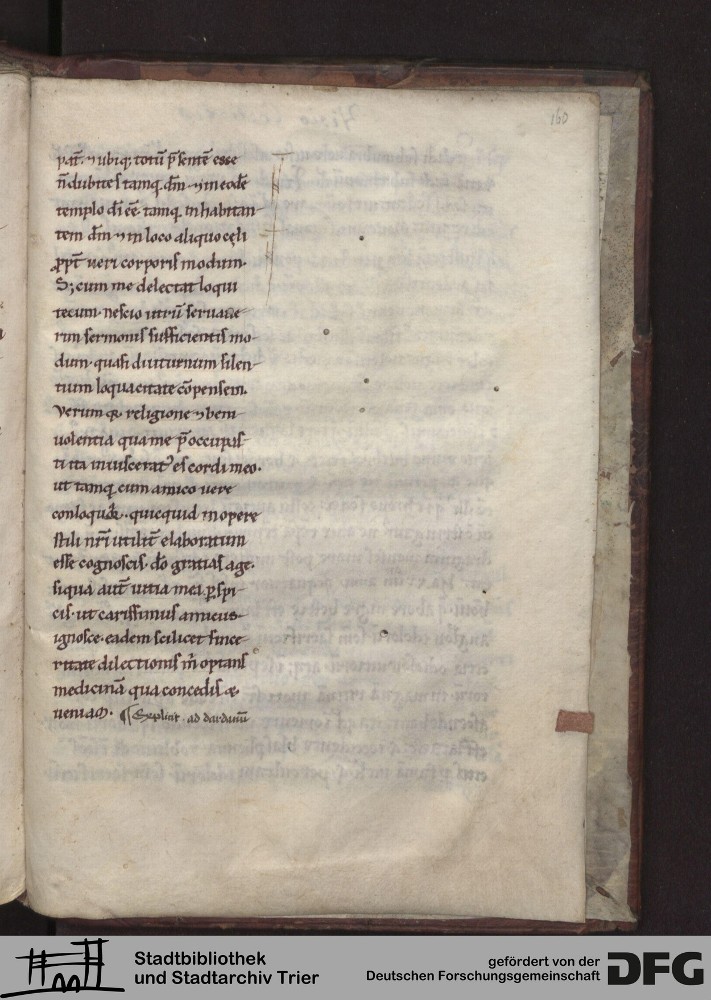 160
pat̄. ⁊ ubiq; totū p̄sentē esse
n̄ dubites tamq̄. dm̄ ⁊ in eodē
templo dī eē. tamq̄. inhabitan-
tem dm̄ ⁊ in loco aliquo cęli
ꝓpt̄ ueri corporis modum.
S; cum me delectat loqui
tecum. nescio utrū seruaue-
rim sermonis sufficientis mo-
dum. quasi diuturnum silen-
tium loquacitate cōpensem.
Verum q̄. religione ⁊ beni-
uolentia qua me p̄occupas-
ti ita inuisceratꝰ es cordi meo.
ut tamq̄ cum amico uere
conloquar. quicquid in opere
stili nr̄i utilit̄ elaboratum
esse cognoscis. dō gratias age.
siqua aut̄ uitia mea ꝑspi-
cis. ut carissimus amicus
ignosce. eadem scilicet since-
ritate dilectionis m̄ optans
medicinā qua concedis &
ueniam. Explicit. ad dardanū
Stadtbibliothek
und Stadtarchiv Trier
gefördert von der
Deutschen Forschungsgemeinschaft
DFG